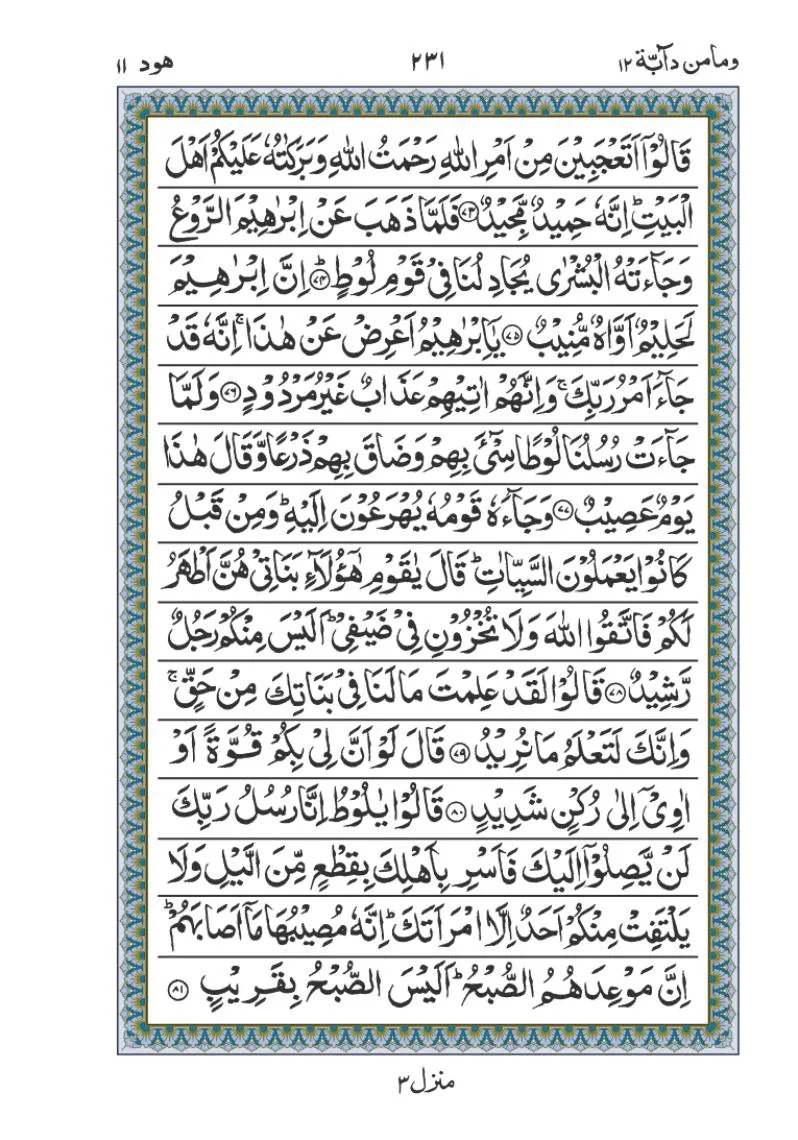 وما من دآبّة ١٢
٢٣١
هود ١١
قَالُوْۤا اَتَعْجَبِيْنَ مِنْ اَمْرِ اللّٰهِ رَحْمَتُ اللّٰهِ وَبَرَكٰتُهٗ عَلَيْكُمْ اَهْلَ
الْبَيْتِؕ اِنَّهٗ حَمِيْدٌ مَّجِيْدٌ ﴿٧٣﴾ فَلَمَّا ذَهَبَ عَنْ اِبْرٰهِيْمَ الرَّوْعُ
وَجَآءَتْهُ الْبُشْرٰى يُجَادِلُنَا فِيْ قَوْمِ لُوْطٍؕ ﴿٧٤﴾ اِنَّ اِبْرٰهِيْمَ
لَحَلِيْمٌ اَوَّاهٌ مُّنِيْبٌ ﴿٧٥﴾ يٰۤاِبْرٰهِيْمُ اَعْرِضْ عَنْ هٰذَاۚ اِنَّهٗ قَدْ
جَآءَ اَمْرُ رَبِّكَۚ وَاِنَّهُمْ اٰتِيْهِمْ عَذَابٌ غَيْرُ مَرْدُوْدٍ ﴿٧٦﴾ وَلَمَّا
جَآءَتْ رُسُلُنَا لُوْطًا سِيْٓءَ بِهِمْ وَضَاقَ بِهِمْ ذَرْعًا وَّقَالَ هٰذَا
يَوْمٌ عَصِيْبٌ ﴿٧٧﴾ وَجَآءَهٗ قَوْمُهٗ يُهْرَعُوْنَ اِلَيْهِؕ وَمِنْ قَبْلُ
كَانُوْا يَعْمَلُوْنَ السَّيِّاٰتِؕ قَالَ يٰقَوْمِ هٰٓؤُلَآءِ بَنَاتِيْ هُنَّ اَطْهَرُ
لَكُمْ فَاتَّقُوا اللّٰهَ وَلَا تُخْزُوْنِ فِيْ ضَيْفِيْؕ اَلَيْسَ مِنْكُمْ رَجُلٌ
رَّشِيْدٌ ﴿٧٨﴾ قَالُوْا لَقَدْ عَلِمْتَ مَا لَنَا فِيْ بَنَاتِكَ مِنْ حَقٍّۚ
وَاِنَّكَ لَتَعْلَمُ مَا نُرِيْدُ ﴿٧٩﴾ قَالَ لَوْ اَنَّ لِيْ بِكُمْ قُوَّةً اَوْ
اٰوِيْۤ اِلٰى رُكْنٍ شَدِيْدٍ ﴿٨٠﴾ قَالُوْا يٰلُوْطُ اِنَّا رُسُلُ رَبِّكَ
لَنْ يَّصِلُوْۤا اِلَيْكَ فَاَسْرِ بِاَهْلِكَ بِقِطْعٍ مِّنَ الَّيْلِ وَلَا
يَلْتَفِتْ مِنْكُمْ اَحَدٌ اِلَّا امْرَاَتَكَؕ اِنَّهٗ مُصِيْبُهَا مَاۤ اَصَابَهُمْؕ
اِنَّ مَوْعِدَهُمُ الصُّبْحُؕ اَلَيْسَ الصُّبْحُ بِقَرِيْبٍ ﴿٨١﴾
منزل ٣